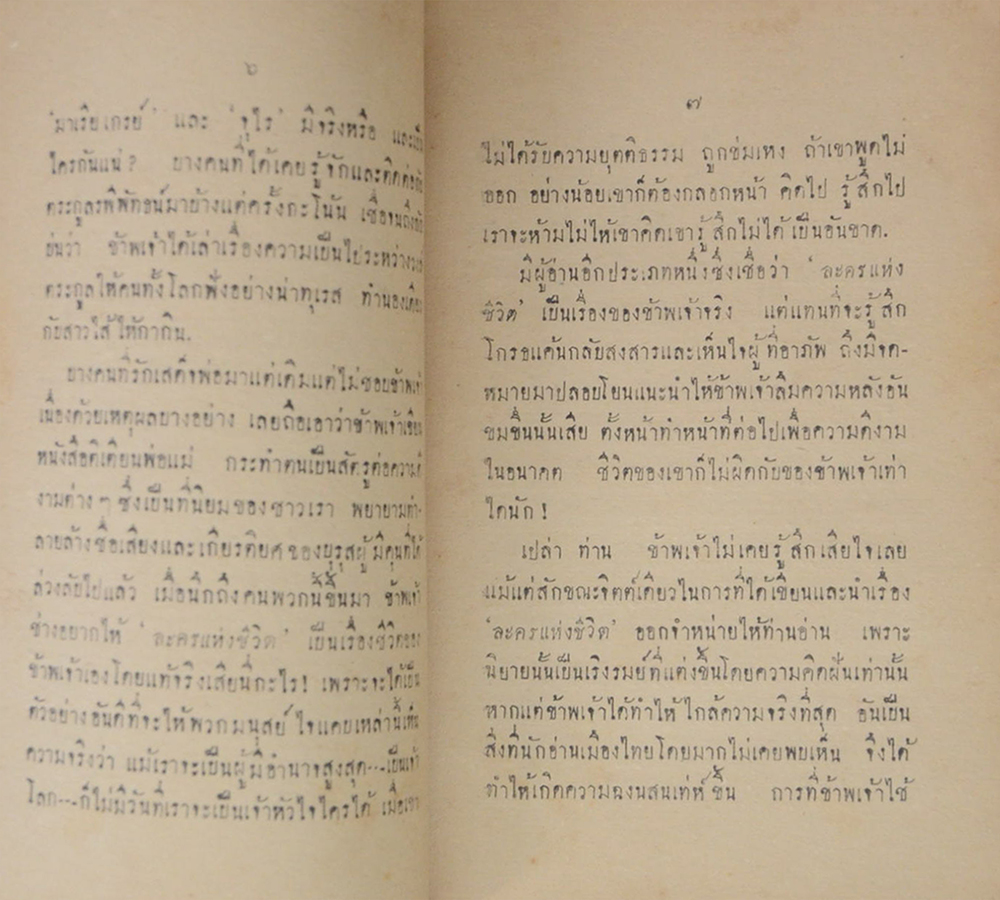 ๖
'มาเรียเกรย์' และ 'รุไร' มีจริงหรือ และเป็น
ใครกันแน่? บางคนที่ได้เคยรู้จักและติดต่อกับ
ตระกูลรพิพัทธน์มาบ้างแต่ครั้งกะโน้น เชื่อจนถึงกับ
ย่นว่า ข้าพเจ้าได้เล่าเรื่องความเป็นไประหว่าง
ตระกูลให้คนทั้งโลกฟังอย่างน่าทุเรศ ทำนองเดียว
กับสาวไส้ให้กากิน.
บางคนที่รักเสด็จพ่อมาแต่เดิมแต่ไม่ชอบข้าพเจ้า
เนื่องด้วยเหตุผลบางอย่าง เลยถือเอาว่าข้าพเจ้าเขียน
หนังสือติเตียนพ่อแม่ กระทำตนเป็นสัตรูต่อความดี
งามต่าง ๆ ซึ่งเป็นที่นิยมของชาวเรา พยายามทำ-
ลายล้างชื่อเสียงและเกียรติยศของบุรุสผู้มีคุนที่ได้
ล่วงลับไปแล้ว เมื่อนึกถึงคนพวกนี้ขึ้นมา ข้าพเจ้า
ช่างอยากให้ 'ละครแห่งชีวิต' เป็นเรื่องชีวิตของ
ข้าพเจ้าเองโดยแท้จริงเสียนี่กะไร! เพราะจะได้เป็น
ตัวอย่างอันดีที่จะให้พวกมนุสย์ใจแคบเหล่านี้เห็น
ความจริงว่า แม้เราจะเป็นผู้มีอำนาจสูงสุด---เป็นเจ้า
โลก---ก็ไม่มีวันที่เราจะเป็นเจ้าหัวใจใครได้ เมื่อเขา
๗
ไม่ได้รับความยุตติธรรม ถูกข่มเหง ถ้าเขาพูดไม่
ออก อย่างน้อยเขาก็ต้องกลอกหน้า คิดไป รู้สึกไป
เราจะห้ามไม่ให้เขาคิดเขารู้สึกไม่ได้เป็นอันขาด.
มีผู้อ่านอีกประเภทหนึ่งซึ่งเชื่อว่า 'ละครแห่ง
ชีวิต' เป็นเรื่องของข้าพเจ้าจริง แต่แทนที่จะรู้สึก
โกรธแค้นกลับสงสารและเห็นใจผู้ที่อาภัพ ถึงมีจด-
หมายมาปลอบโยนแนะนำให้ข้าพเจ้าลืมความหลังอัน
ขมขื่นนั้นเสีย ตั้งหน้าทำหน้าที่ต่อไปเพื่อความดีงาม
ในอนาคต ชีวิตของเขาก็ไม่ผิดกับของข้าพเจ้าเท่า
ใดนัก!
เปล่า ท่าน ข้าพเจ้าไม่เคยรู้สึกเสียใจเลย
แม้แต่สักขณะจิตต์เดียวในการที่ได้เขียนและนำเรื่อง
'ละครแห่งชีวิต' ออกจำหน่ายให้ท่านอ่าน เพราะ
นิยายนั้นเป็นเริงรมย์ที่แต่งขึ้นโดยความคิดฝันเท่านั้น
หากแต่ข้าพเจ้าได้ทำให้ใกล้ความจริงที่สุด อันเป็น
สิ่งที่นักอ่านเมืองไทยโดยมากไม่เคยพบเห็น จึงได้
ทำให้เกิดความฉงนสนเท่ห์ขึ้น การที่ข้าพเจ้าใช้